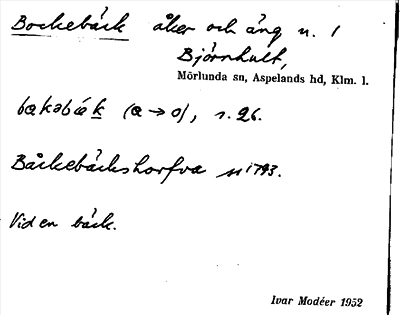 Bockebäck åker och äng n. 1
Björnhult,
Mörlunda sn, Aspelands hd, Klm. l.
bɑkabæk (ɑ → o), s. 26.
Båckebäckshorfva 1793.
Vid en bäck.
Ivar Modéer 1952